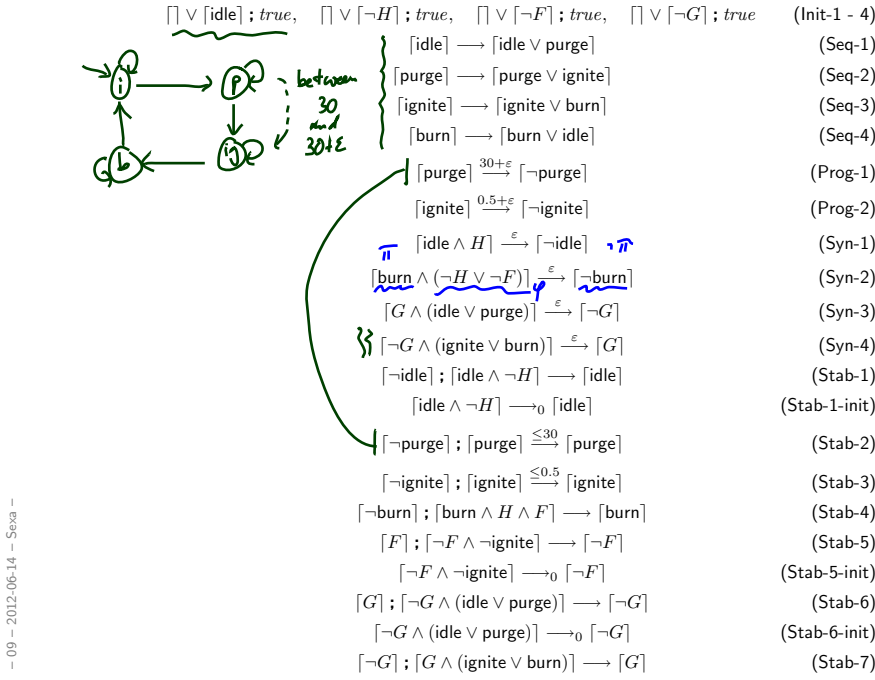 ⌈⌉ ∨ ⌈idle⌉ ; true, ⌈⌉ ∨ ⌈¬H⌉ ; true, ⌈⌉ ∨ ⌈¬F⌉ ; true, ⌈⌉ ∨ ⌈¬G⌉ ; true (Init-1 - 4)
⌈idle⌉ ⟶ ⌈idle ∨ purge⌉ (Seq-1)
⌈purge⌉ ⟶ ⌈purge ∨ ignite⌉ (Seq-2)
⌈ignite⌉ ⟶ ⌈ignite ∨ burn⌉ (Seq-3)
⌈burn⌉ ⟶ ⌈burn ∨ idle⌉ (Seq-4)
i p between
30
and
30+ε
b ig
⌈purge⌉ 30+ε⟶ ⌈¬purge⌉ (Prog-1)
⌈ignite⌉ 0.5+ε⟶ ⌈¬ignite⌉ (Prog-2)
π ⌈idle ∧ H⌉ ε⟶ ⌈¬idle⌉ ¬π (Syn-1)
⌈burn ∧ (¬H ∨ ¬F)⌉ ε⟶ ⌈¬burn⌉ (Syn-2)
φ
⌈G ∧ (idle ∨ purge)⌉ ε⟶ ⌈¬G⌉ (Syn-3)
⌈¬G ∧ (ignite ∨ burn)⌉ ε⟶ ⌈G⌉ (Syn-4)
⌈¬idle⌉ ; ⌈idle ∧ ¬H⌉ ⟶ ⌈idle⌉ (Stab-1)
⌈idle ∧ ¬H⌉ ⟶₀ ⌈idle⌉ (Stab-1-init)
⌈¬purge⌉ ; ⌈purge⌉ ≤30⟶ ⌈purge⌉ (Stab-2)
⌈¬ignite⌉ ; ⌈ignite⌉ ≤0.5⟶ ⌈ignite⌉ (Stab-3)
⌈¬burn⌉ ; ⌈burn ∧ H ∧ F⌉ ⟶ ⌈burn⌉ (Stab-4)
⌈F⌉ ; ⌈¬F ∧ ¬ignite⌉ ⟶ ⌈¬F⌉ (Stab-5)
⌈¬F ∧ ¬ignite⌉ ⟶₀ ⌈¬F⌉ (Stab-5-init)
⌈G⌉ ; ⌈¬G ∧ (idle ∨ purge)⌉ ⟶ ⌈¬G⌉ (Stab-6)
⌈¬G ∧ (idle ∨ purge)⌉ ⟶₀ ⌈¬G⌉ (Stab-6-init)
⌈¬G⌉ ; ⌈G ∧ (ignite ∨ burn)⌉ ⟶ ⌈G⌉ (Stab-7)
– 09 – 2012-06-14 – Sexa –